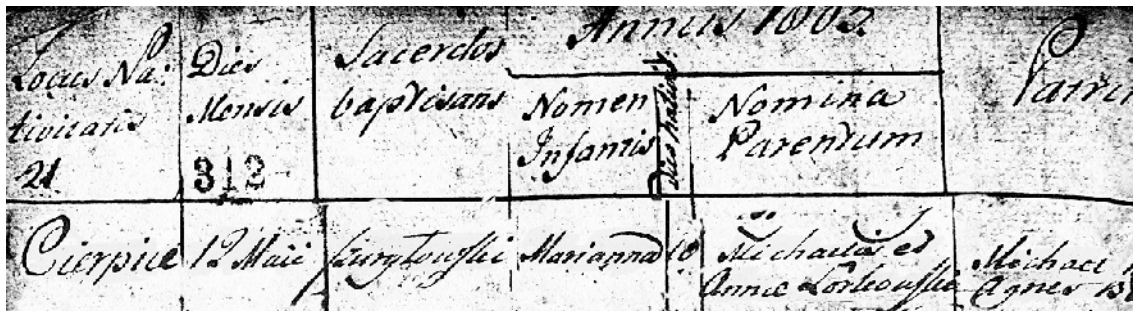 Annus 1802
Locus Na:
tivitatis
21
Dies
Mensis
312
Sacerdos
baptisans
Nomen
Infantis
dies natival
Nomina
Parentum
Patri
Cierpice 12 Maii Marianna 10 Michaelis et
Annæ
Michael
Agnes